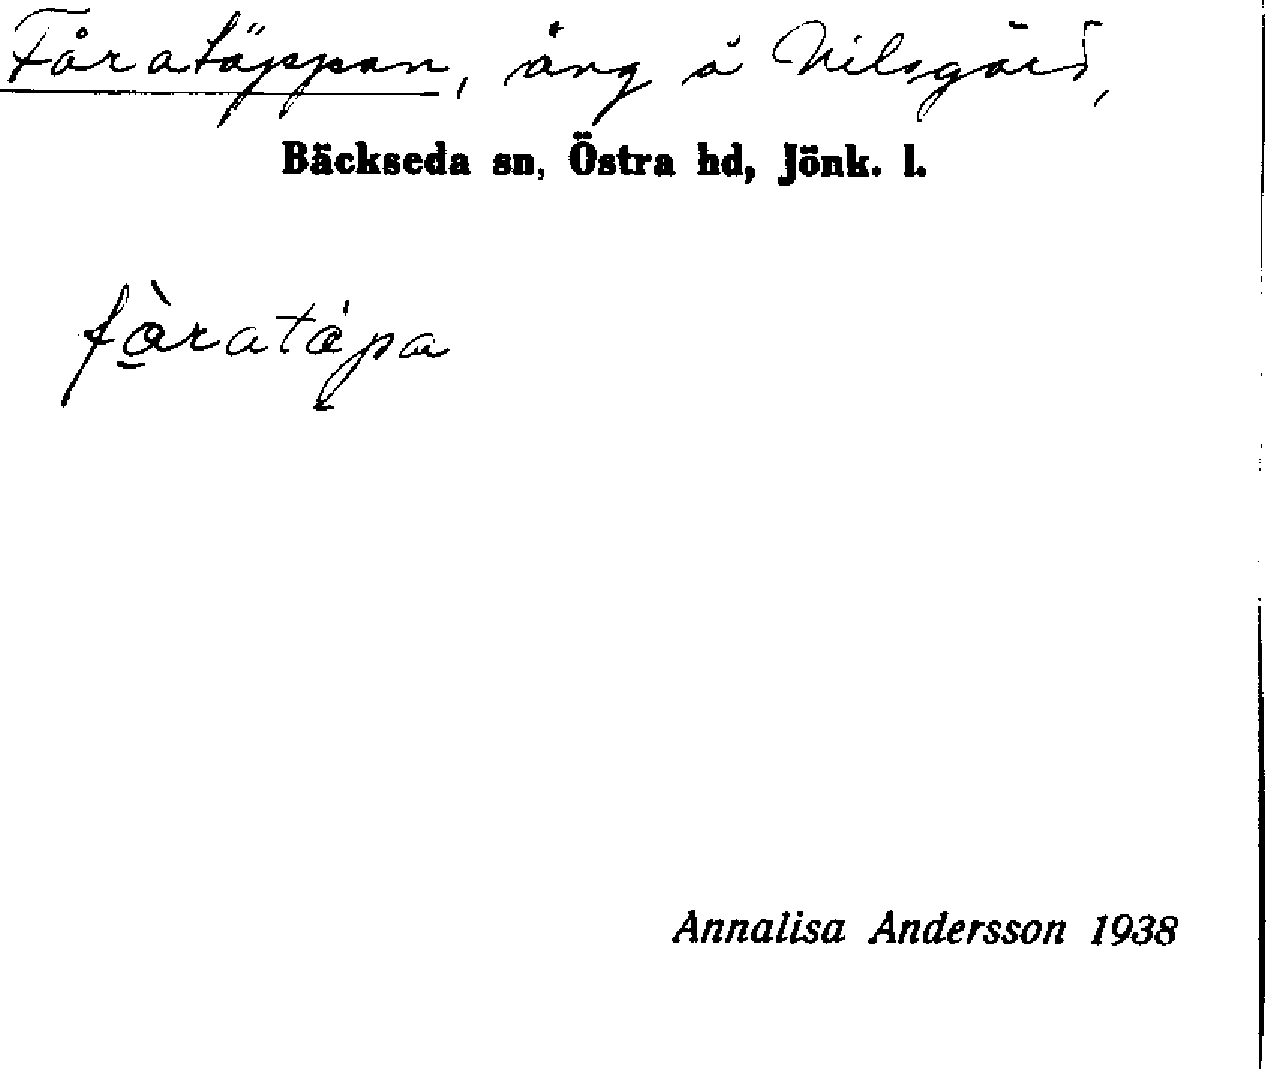 Fåratäppan, äng å Nilsgård,
Bäckseda sn, Östra hd, Jönk. l.
fàratápa
Annalisa Andersson 1938